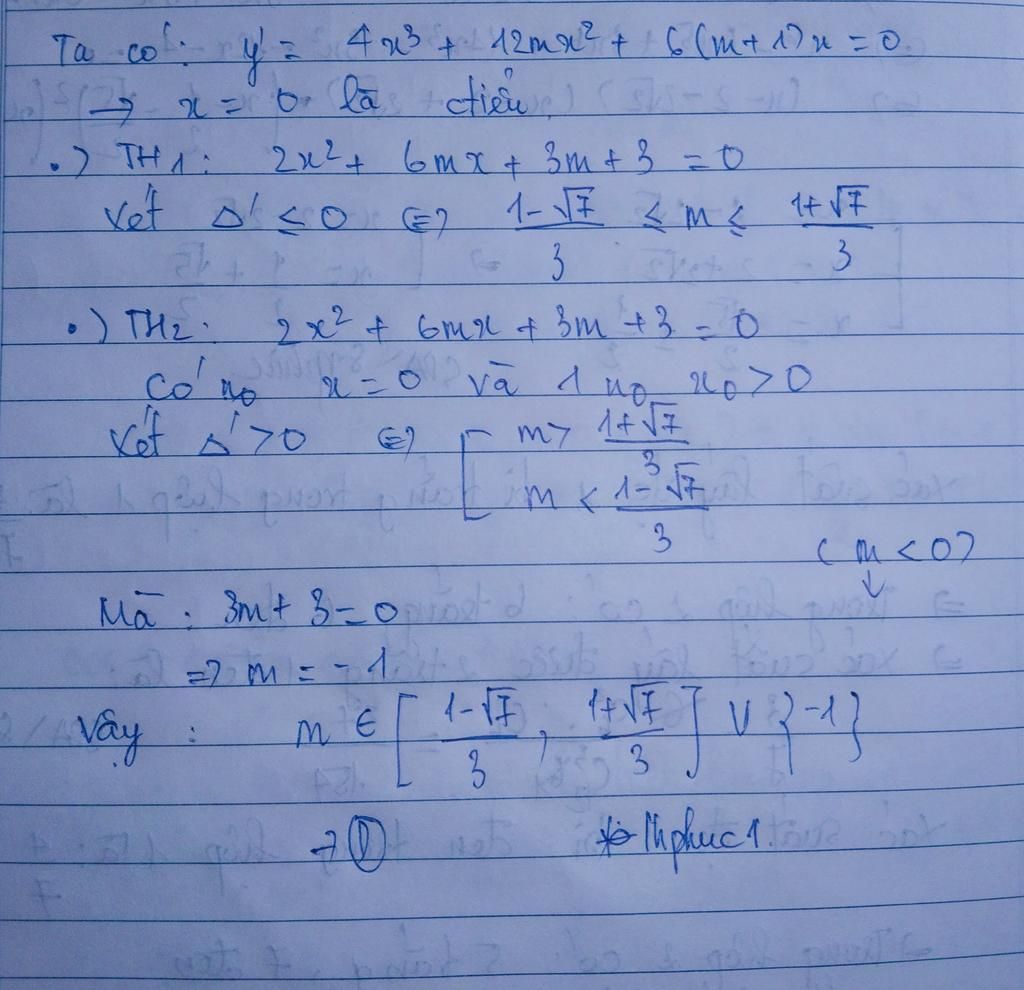 Ta có: y' = 4x³ + 12mx² + 6(m+1)x = 0
→ x = 0 là ctiểu
•) TH1: 2x² + 6mx + 3m + 3 = 0
Xét Δ' ≤ 0 ⇔ (1-√7)/3 ≤ m ≤ (1+√7)/3
•) TH2: 2x² + 6mx + 3m + 3 = 0
có n₀ x = 0 và 1 n₀ x₀ > 0
Xét Δ' > 0 ⇔ [ m > (1+√7)/3
m < (1-√7)/3
(m < 0)
↓
Mà: 3m + 3 = 0
⇒ m = -1
Vậy: m ∈ [ (1-√7)/3 , (1+√7)/3 ] ∪ {-1}
→ Ⓓ